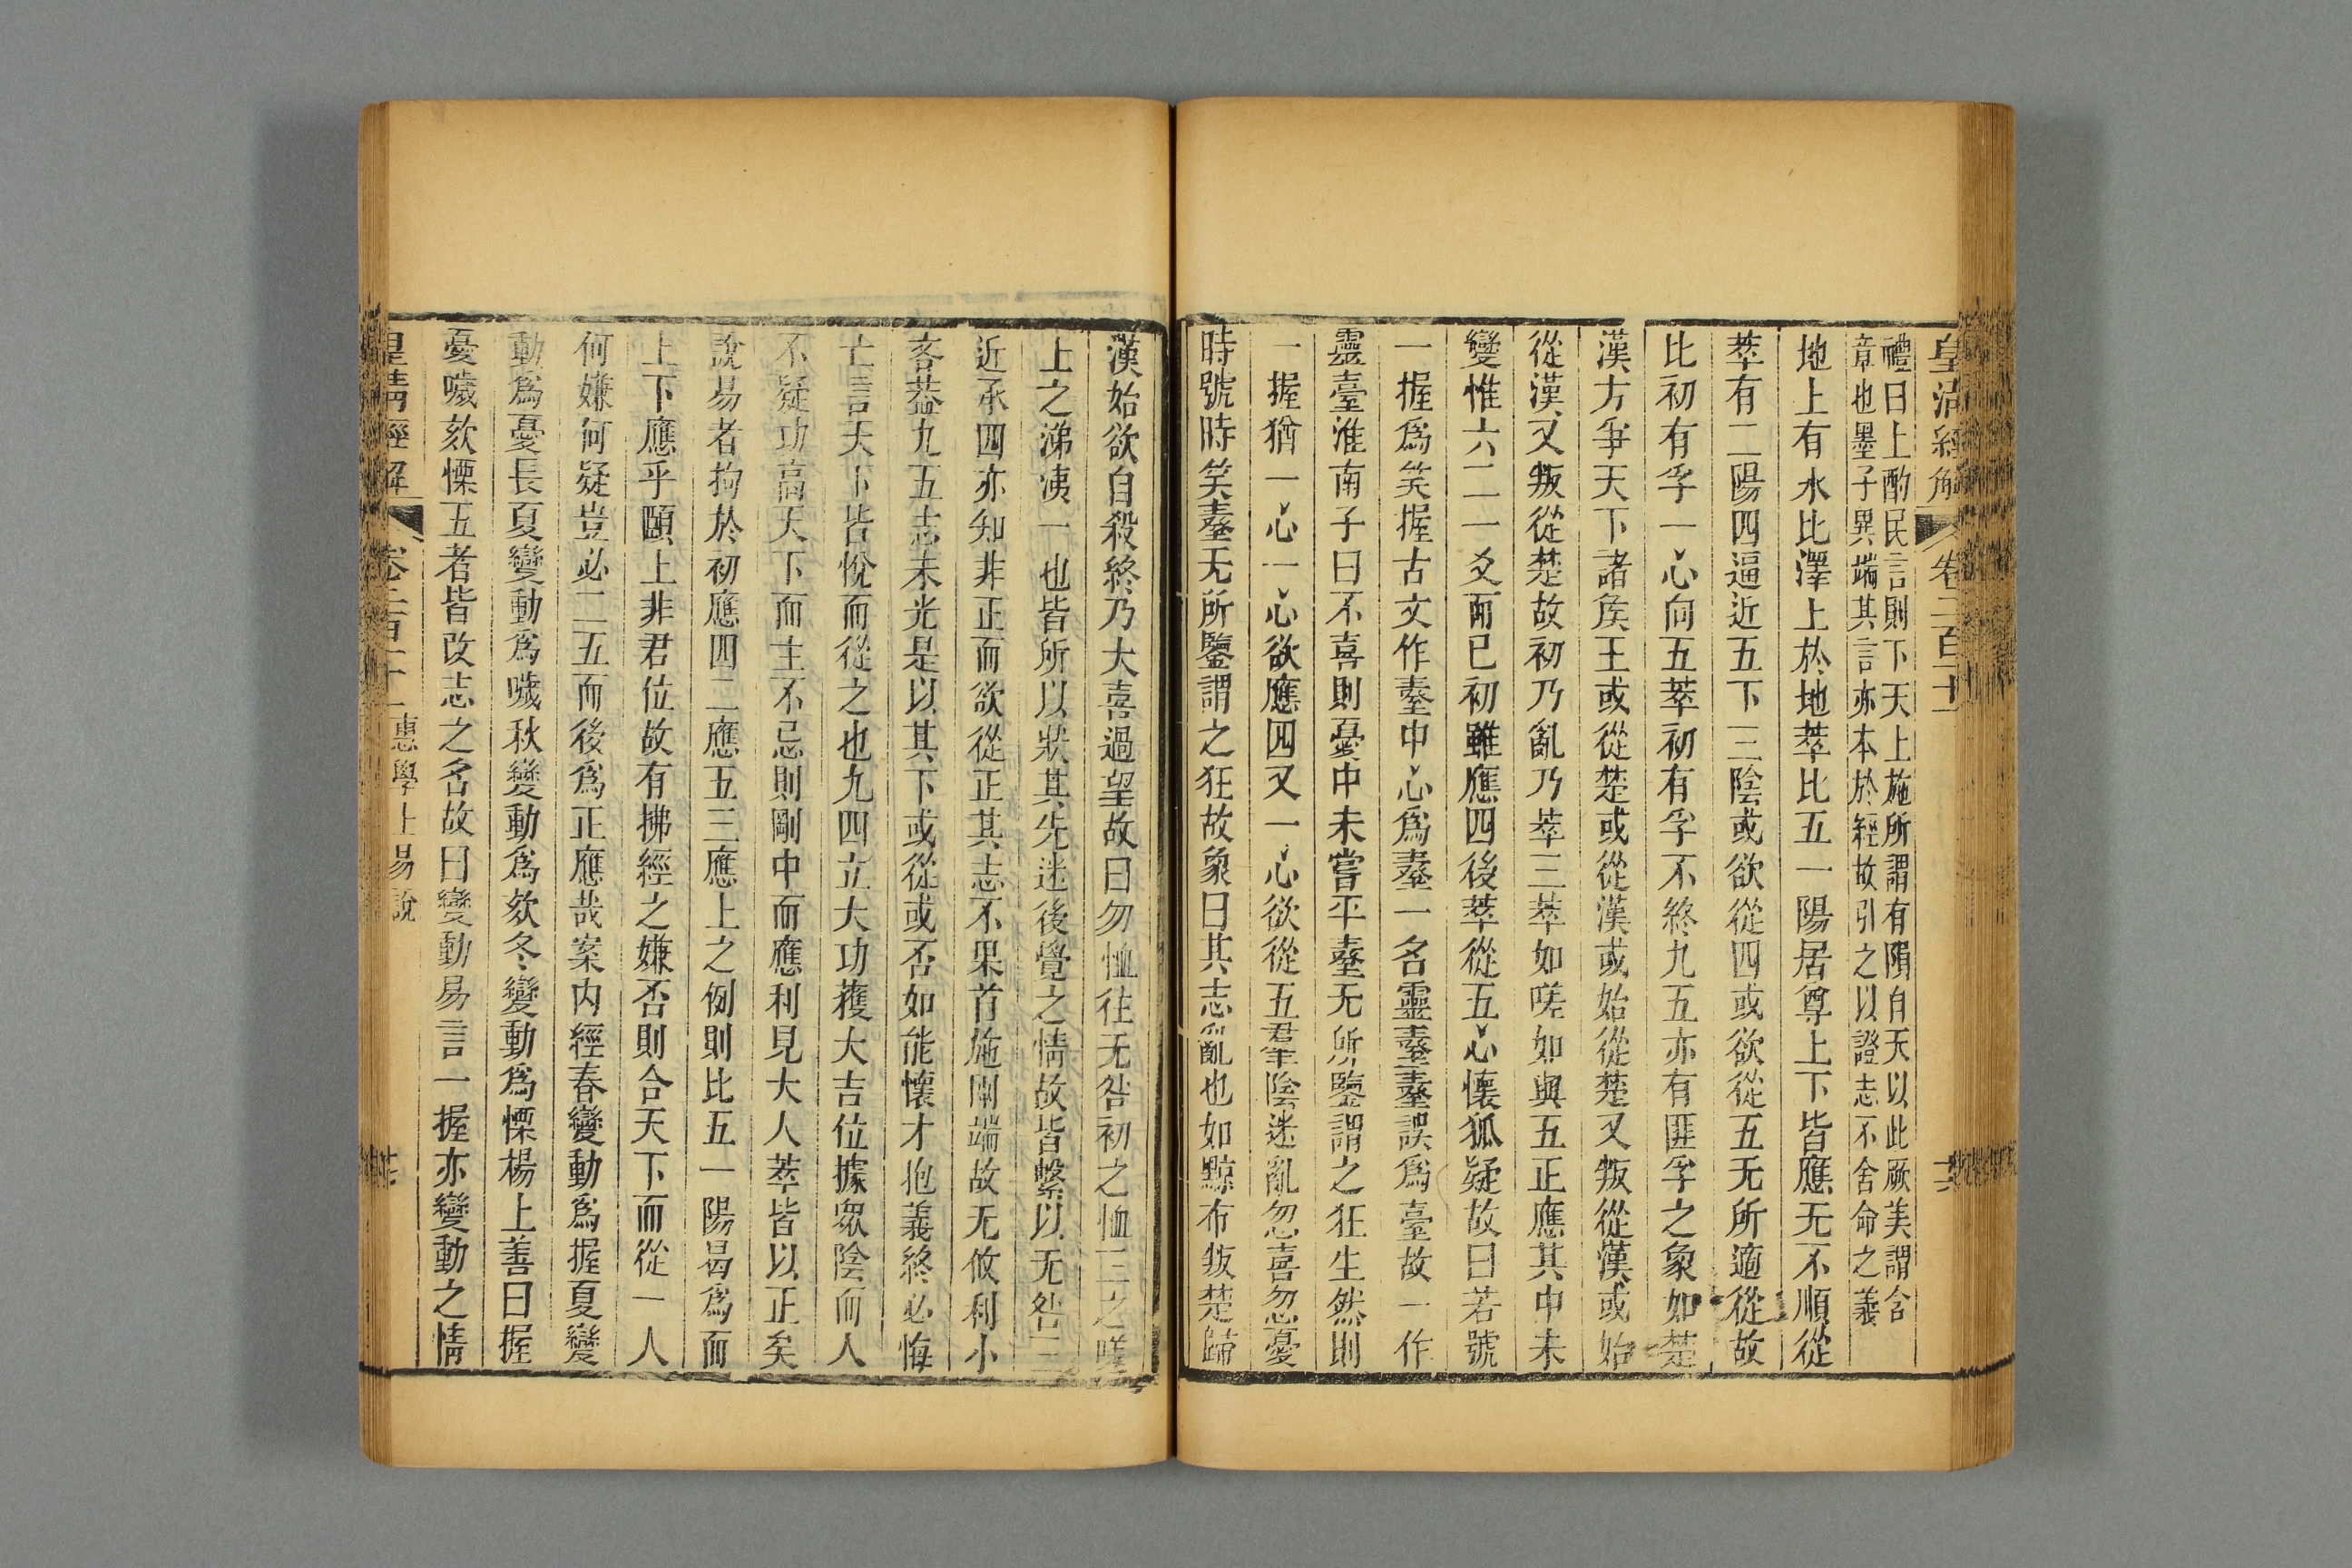 皇清經解 卷二百十
禮曰上酌民言則下天上施所謂有隕自天以此厥美謂含
章也墨子異端其言亦本於經故引之以證志不舍命之義
地上有水比澤上於地萃比五一陽居尊上下皆應无不順從
萃有二陽四逼近五下三陰或欲從四或欲從五无所適從故
比初有孚一心向五萃初有孚不終九五亦有匪孚之象如楚
漢方爭天下諸矦王或從楚或從漢或始從楚又叛從漢或始
從漢又叛從楚故初乃亂乃萃三萃如嗟如與五正應其中未
變惟六二一爻而已初雖應四後萃從五心懷狐疑故曰若號
一握爲笑握古文作䑓中心爲䑓一名靈䑓䑓誤爲臺故一作
靈臺淮南子曰不喜則憂中未嘗平䑓无所鑒謂之狂生然則
一握猶一心一心欲應四又一心欲從五羣陰迷亂忽喜忽憂
時號時笑䑓无所鑒謂之狂故象曰其志亂也如黥布叛楚歸
漢始欲自殺終乃大喜過望故曰勿恤往无咎初之恤三之嗟
上之涕洟一也皆所以狀其先迷後覺之情故皆繫以无咎三
近承四亦知非正而欲從正其志不果首施兩端故无攸利小
吝葢九五志未光是以其下或從或否如能懷才抱義終必悔
亡言天下皆悅而從之也九四立大功獲大吉位據眾陰而人
不疑功高天下而主不忌則剛中而應利見大人萃皆以正矣
說易者拘於初應四二應五三應上之例則比五一陽曷爲而
上下應乎頤上非君位故有拂經之嫌否則合天下而從一人
何嫌何疑豈必二五而後爲正應哉案内經春變動爲握夏變
動爲憂長夏變動爲噦秋變動爲欬冬變動爲慄楊上善曰握
憂噦欬慄五者皆改志之名故曰變動易言一握亦變動之情
皇清經解 卷二百十一 惠學士易說